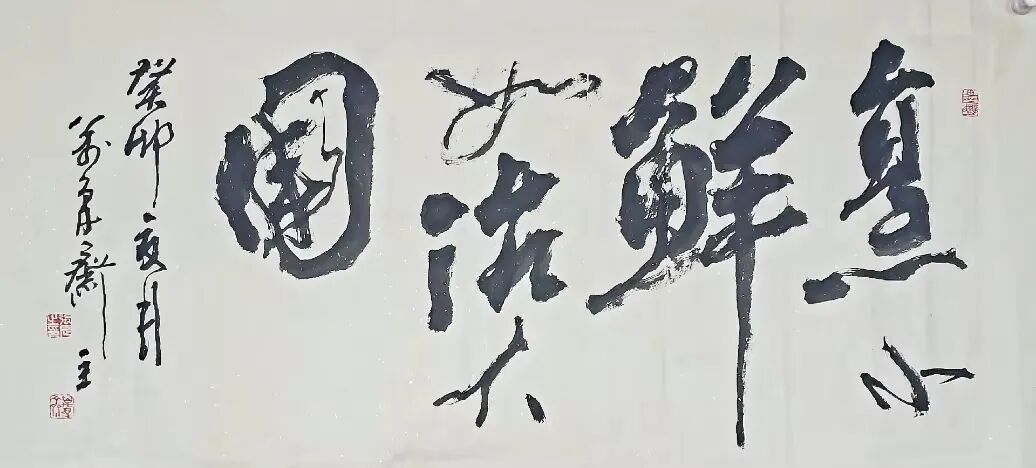 烹小
鮮
如治大
國
癸卯夏月
齋主